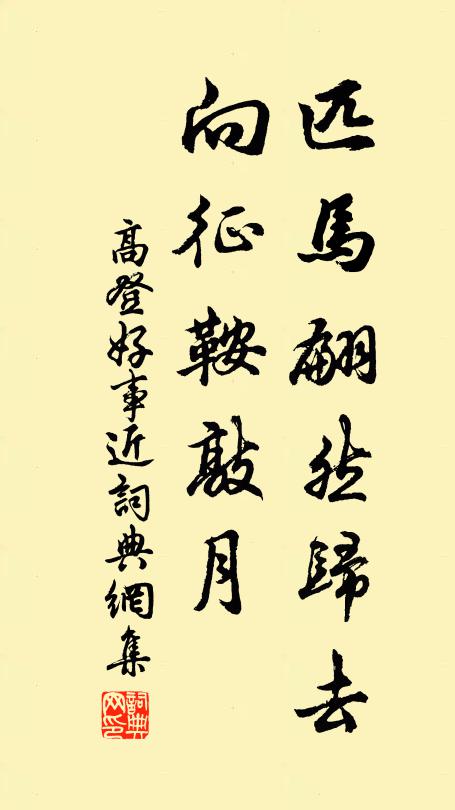 匹馬翩然歸去
向征鞍敲月
高登好事近詞典網集
詞典网印